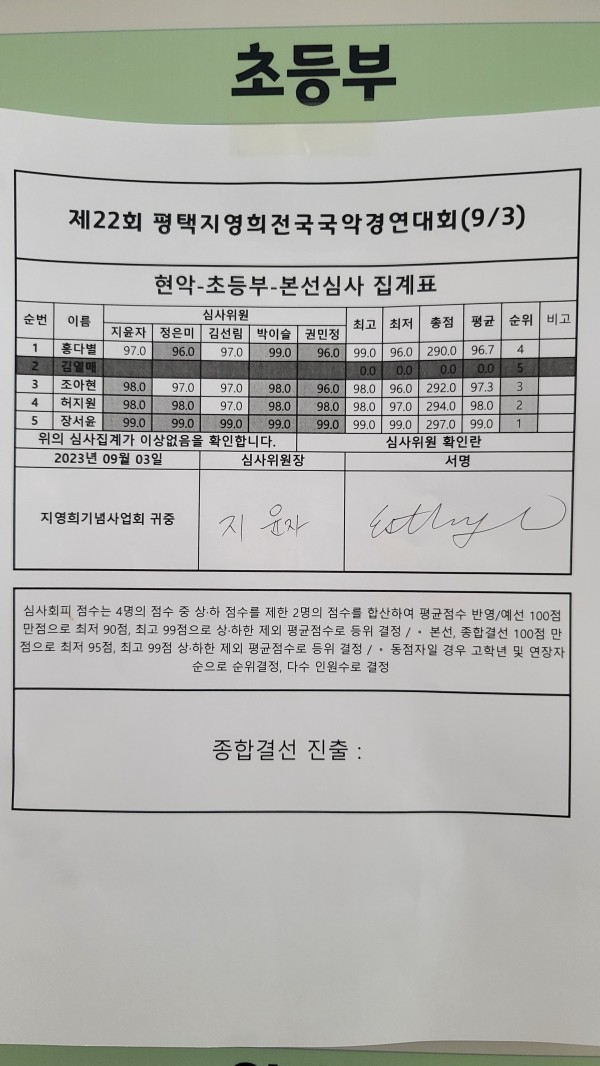 초등부
제22회 평택지영희전국국악경연대회(9/3)
현악-초등부-본선심사 집계표
순번 이름 심사위원 최고 최저 총점 평균 순위 비고
지윤자 정은미 김선림 박이슬 권민정
1 홍다별 97.0 96.0 97.0 99.0 96.0 99.0 96.0 290.0 96.7 4
2 김열매 0.0 0.0 0.0 0.0 5
3 조아현 98.0 97.0 97.0 98.0 96.0 98.0 96.0 292.0 97.3 3
4 허지원 98.0 98.0 97.0 98.0 98.0 98.0 97.0 294.0 98.0 2
5 장서윤 99.0 99.0 99.0 99.0 99.0 99.0 99.0 297.0 99.0 1
위의 심사집계가 이상없음을 확인합니다. 심사위원 확인란
2023년 09월 03일 심사위원장 서명
지영희기념사업회 귀중 지 윤자
심사회피 점수는 4명의 점수 중 상·하 점수를 제한 2명의 점수를 합산하여 평균점수 반영/예선 100점
만점으로 최저 90점, 최고 99점으로 상·하한 제외 평균점수로 등위 결정 / • 본선, 종합결선 100점 만
점으로 최저 95점, 최고 99점 상·하한 제외 평균점수로 등위 결정 / • 동점자일 경우 고학년 및 연장자
순으로 순위결정, 다수 인원수로 결정
종합결선 진출 :